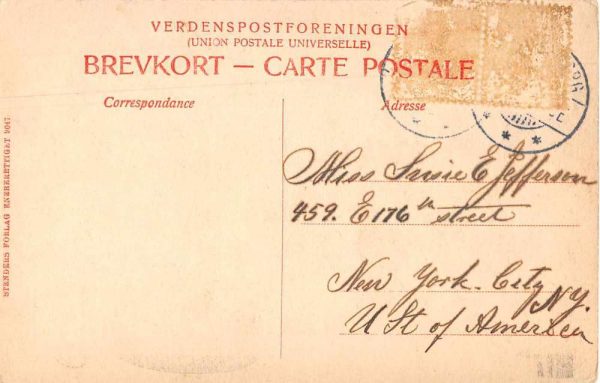 VERDENSPOSTFORENINGEN
(UNION POSTALE UNIVERSELLE)
BREVKORT — CARTE POSTALE
Correspondance
Adresse
Miss Susie E Jefferson
459. E 176th street
New York. City
N.Y.
U St of America
STENDERS FORLAG ENEBERETTIGET 9047